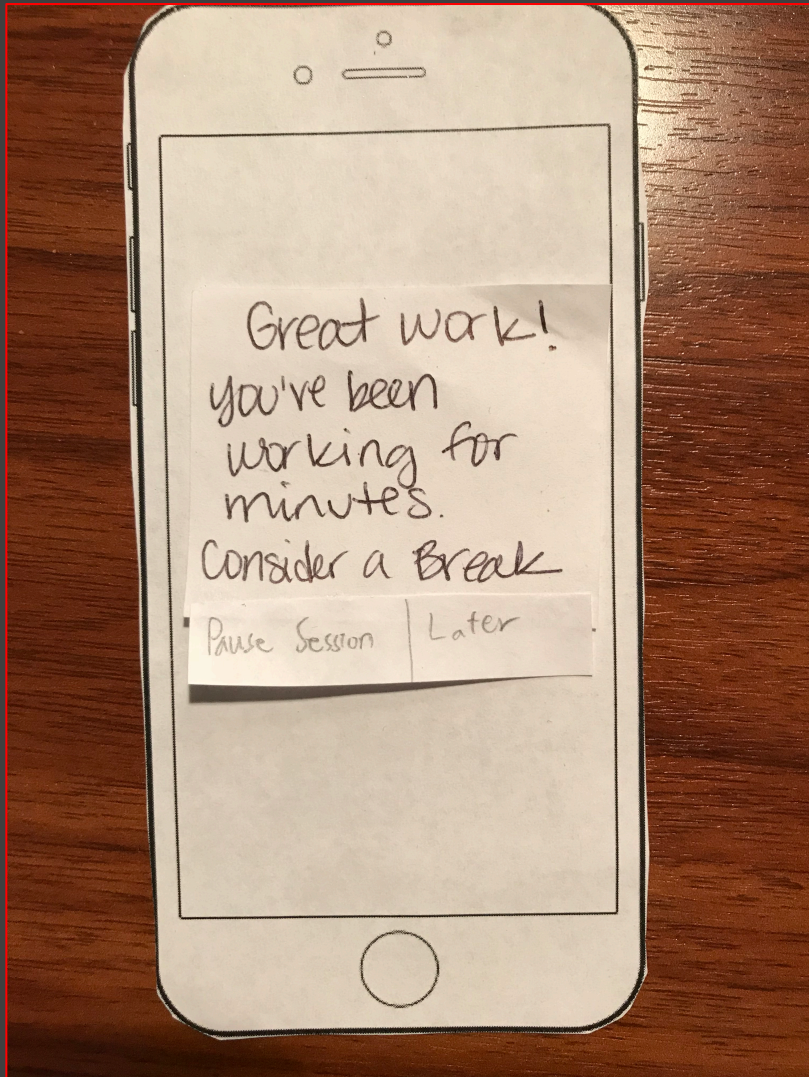 Great work!
you've been
working for
minutes.
Consider a Break
Pause Session | Later